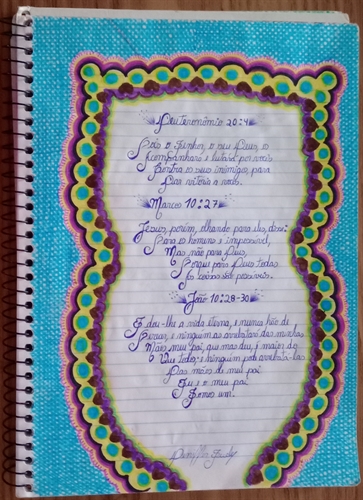 Deuteronômio 20:4
Pois o Senhor, o seu Deus, o
acompanhara e lutará por vocês
Contra os seus inimigo, para
Das vitoria a vocês.
Marcos 10:27
Jesus, porém, olhando para eles, disse:
Para o homens e impossível,
Mas não para Deus,
Porque para Deus todas
As coisas são possíveis.
João 10:28-30
E dou-lhe a vida eterna, e nunca hão de
Perecer, e ninguem as arrebatará das minhas
Mãos meu pai, que mas deu, é maior do
Que todos; e ninguem pode arrebatá-las
Das mãos de meu pai
Eu e o meu pai
Somos um.